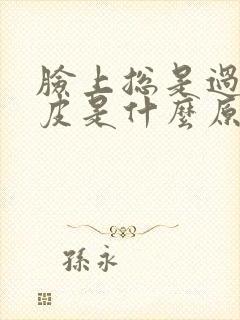 臉上總是過
皮是什麼原
孫永